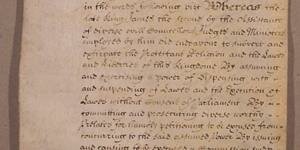 in the words following viz Whereas the
late King James the second by the Assistance
of diverse evill Councillors Judges and Ministers
imployed by him did endeavour to subvert and
extirpate the Protestant Religion and the Lawes
and Liberties of this Kingdome By assuming
and exercising a power of Dispensing with
and suspending of Lawes and the Execution of
Lawes without consent of Parliament By
committing and prosecuting diverse worthy
Prelates for humbly petitioning to be excused from
concurring to the said assumed Power By issuing
and causing to be executed a commission